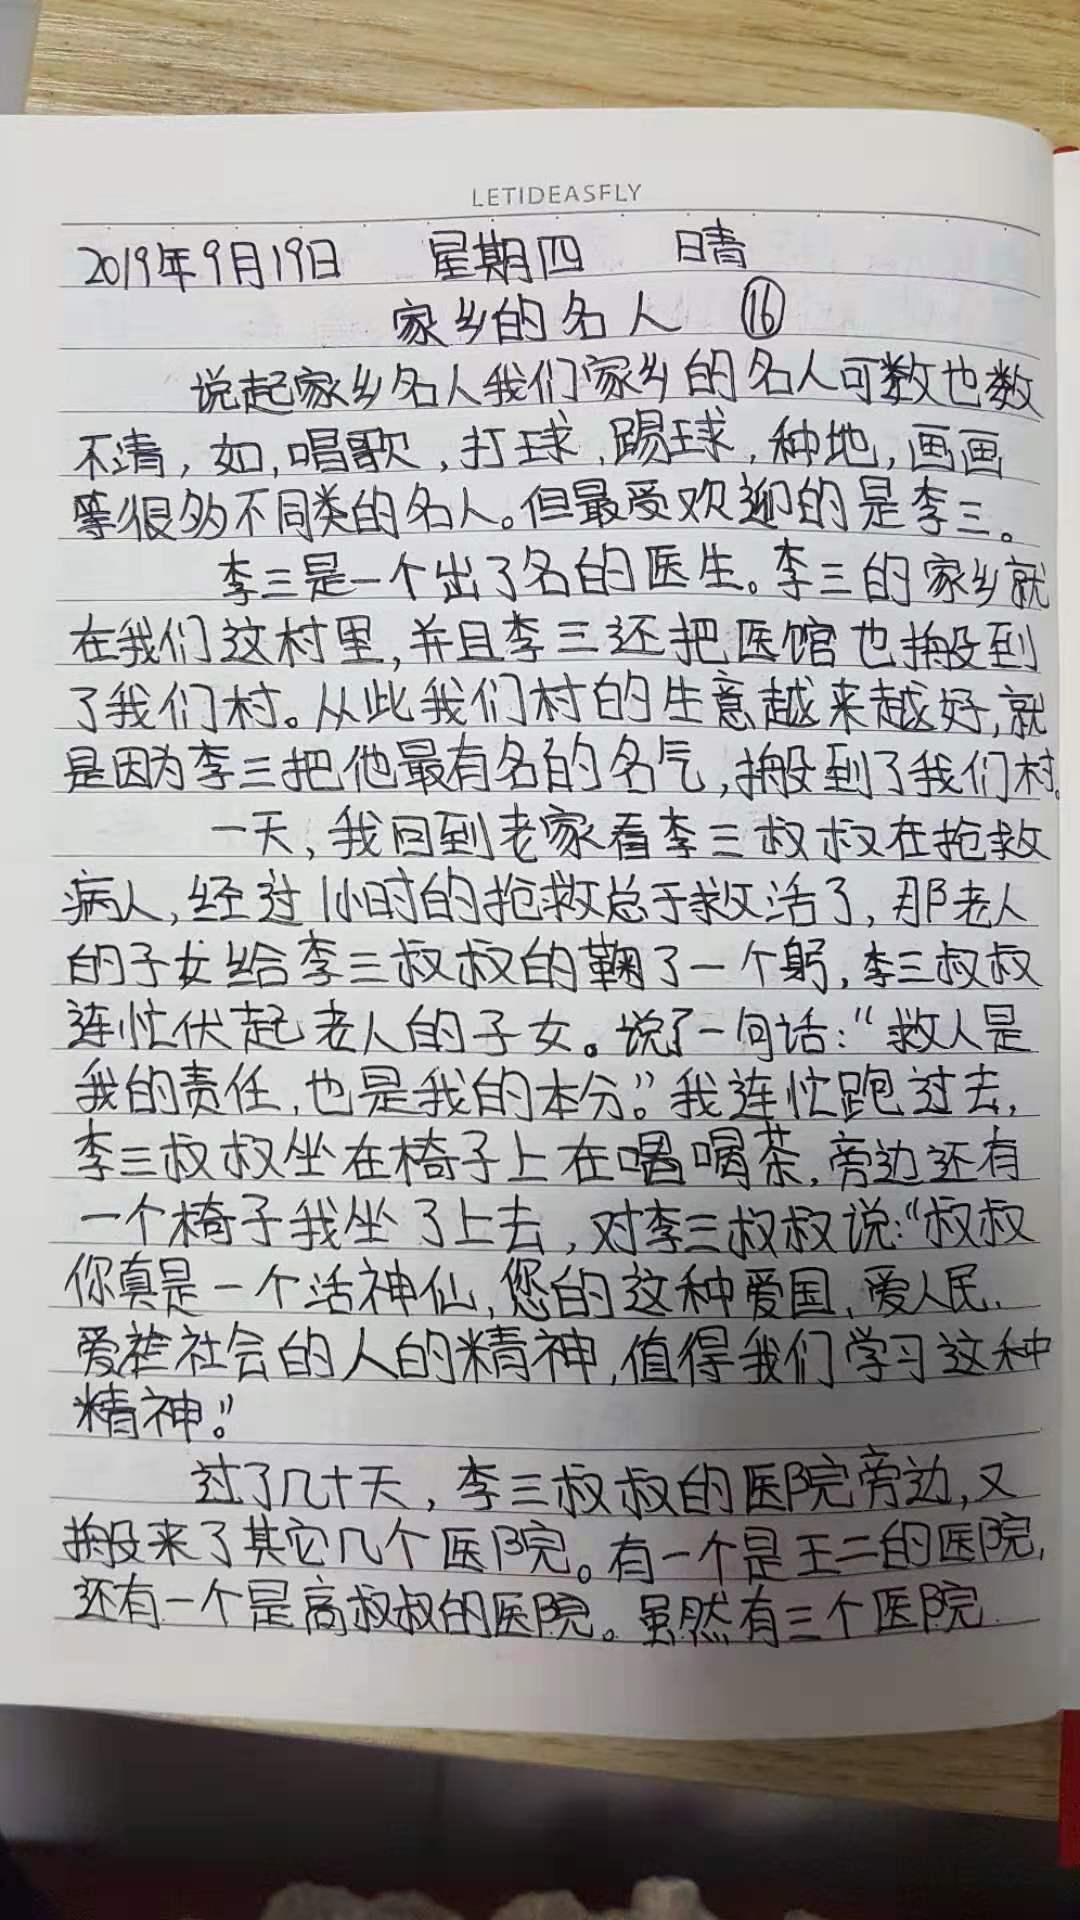 LETIDEASFLY
2019年9月19日 星期四 晴
家乡的名人 ⑯
说起家乡名人我们家乡的名人可数也数
不清,如,唱歌,打球,踢球,种地,画画
等很多不同类的名人。但最受欢迎的是李三。
李三是一个出了名的医生。李三的家乡就
在我们这村里,并且李三还把医馆也搬到
了我们村。从此我们村的生意越来越好,就
是因为李三把他最有名的名气,搬到了我们村。
一天,我回到老家看李三叔叔在抢救
病人,经过1小时的抢救总于救活了,那老人
的子女给李三叔叔的鞠了一个躬,李三叔叔
连忙伏起老人的子女。说了一句话:“救人是
我的责任,也是我的本分。”我连忙跑过去,
李三叔叔坐在椅子上在喝喝茶,旁边还有
一个椅子我坐了上去,对李三叔叔说:“叔叔
你真是一个活神仙,您的这种爱国,爱人民,
爱社会的人的精神,值得我们学习这种
精神。”
过了几十天,李三叔叔的医院旁边,又
搬来了其它几个医院。有一个是王二的医院,
还有一个是高叔叔的医院。虽然有三个医院